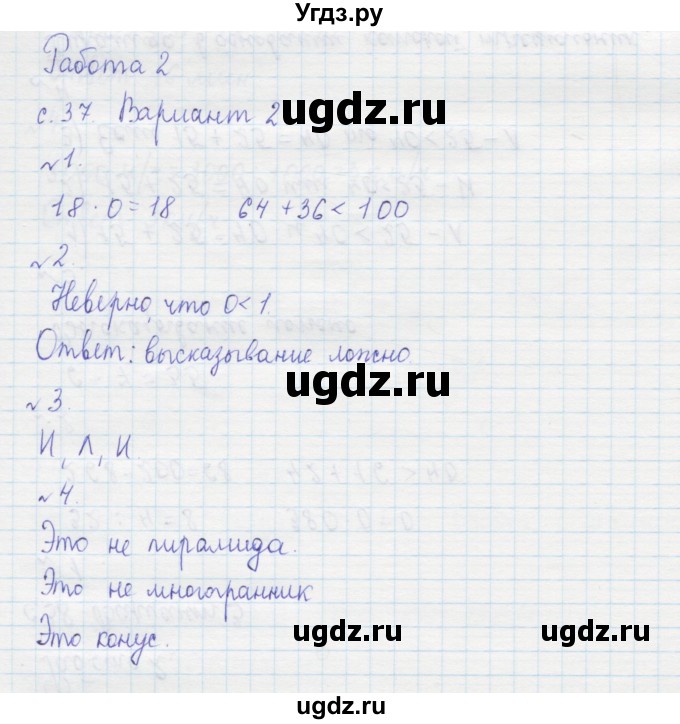 Угдз.ру
Работа 2
с. 37. Вариант 2
ugdz.ru
№1.
18 · 0 = 18 64 + 36 < 100
№2.
Неверно, что 0 < 1.
Ответ: высказывание ложно
ugdz.ru
№3.
И, Л, И.
№4.
Это не пирамида.
Это не многогранник
Это конус.
ugdz.ru ugdz.ru
ugdz.ru